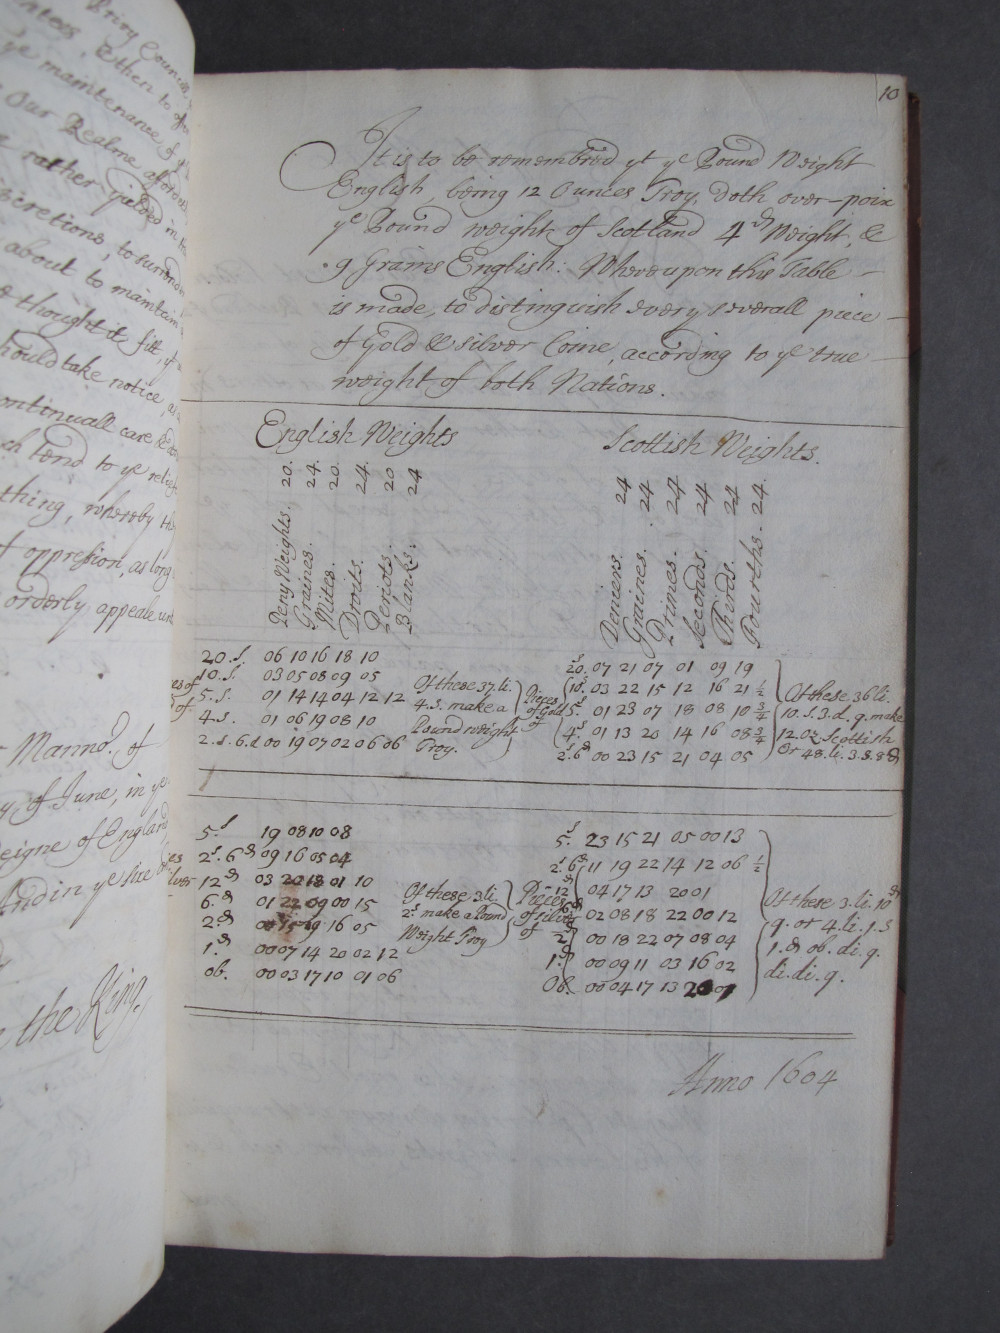 Privy Council
then to
ye maintenance of
Our Realme aforesd
rather yielded in
discretions, to surrender
about to maintain
thought it fitt, yt
should take notice, as
continuall care &
ch tend to ye relief
thing, whereby the
of oppression, as long
orderly appeale unto
Manno.r of
y of June, in ye
eigne of England
And in ye sixe
the King.
10
It is to be remembred yt ye Pound Weight
English, being 12 Ounces Troy, doth over-poix
ye Pound weight of Scotland 4 d Weight, &
9 Grains English: Whereupon this Table
is made, to distinguish every severall piece
of Gold & silver Coine, according to ye true
weight of both Nations.
English Weights
Scottish Weights.
Peny Weights. 20.
Graines. 24.
Mites. 20.
Droits. 24.
Periots. 20
Blanks. 24
Deniers. 24
Graines. 24
Primes. 24
Seconds. 24
Therds. 24
Fourths. 24.
20.s. 06 10 16 18 10
10.s. 03 05 08 09 05
5.s. 01 14 14 04 12 12
4.s. 01 06 19 08 10
2.s.6.d 00 19 07 02 06 06
Of these 37.li.
4.s. make a
Pound weight
Troy.
Pieces
of Gold
of
20.s 07 21 07 01 09 19
10.s 03 22 15 12 16 21 1/2
5.s 01 23 07 18 08 10 3/4
4.s 01 13 20 14 16 08 3/4
2.s 6d 00 23 15 21 04 05
Of these 36 li.
10.s.3.d.q. make
12.oz. Scottish
Or 48.li.3.s.8d
5.s 19 08 10 08
2.s.6.d 09 16 05 04
12.d 03 20 18 01 10
6.d 01 22 09 00 15
2.d 00 15 09 16 05
1.d 00 07 14 20 02 12
ob. 00 03 17 10 01 06
Of these .3 li.
2.s make a Pound
Weight Troy
Pieces
of silver
of
5.s 23 15 21 05 00 13
2.s 6d 11 19 22 14 12 06 1/2
12d 04 17 13 20 01
6d 02 08 18 22 00 12
2d 00 18 22 07 08 04
1.d 00 09 11 03 16 02
Ob. 00 04 17 13 20 07
Of these 3.li.10d
q. or 4.li.1.s
1.d ob. di. q.
di. di. q.
Anno 1604